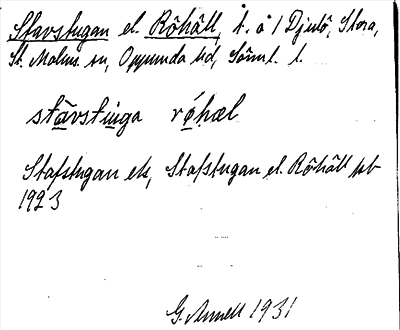 Stavstugan el. Röhäll, t. o 1 Djulö, Stora,
St. Malms sn, Oppunda hd, Sörml. l.
stavstuga röhæl
Stafstugan ek, Stafstugan el. Röhäll jdb
1923
G. Annell 1931